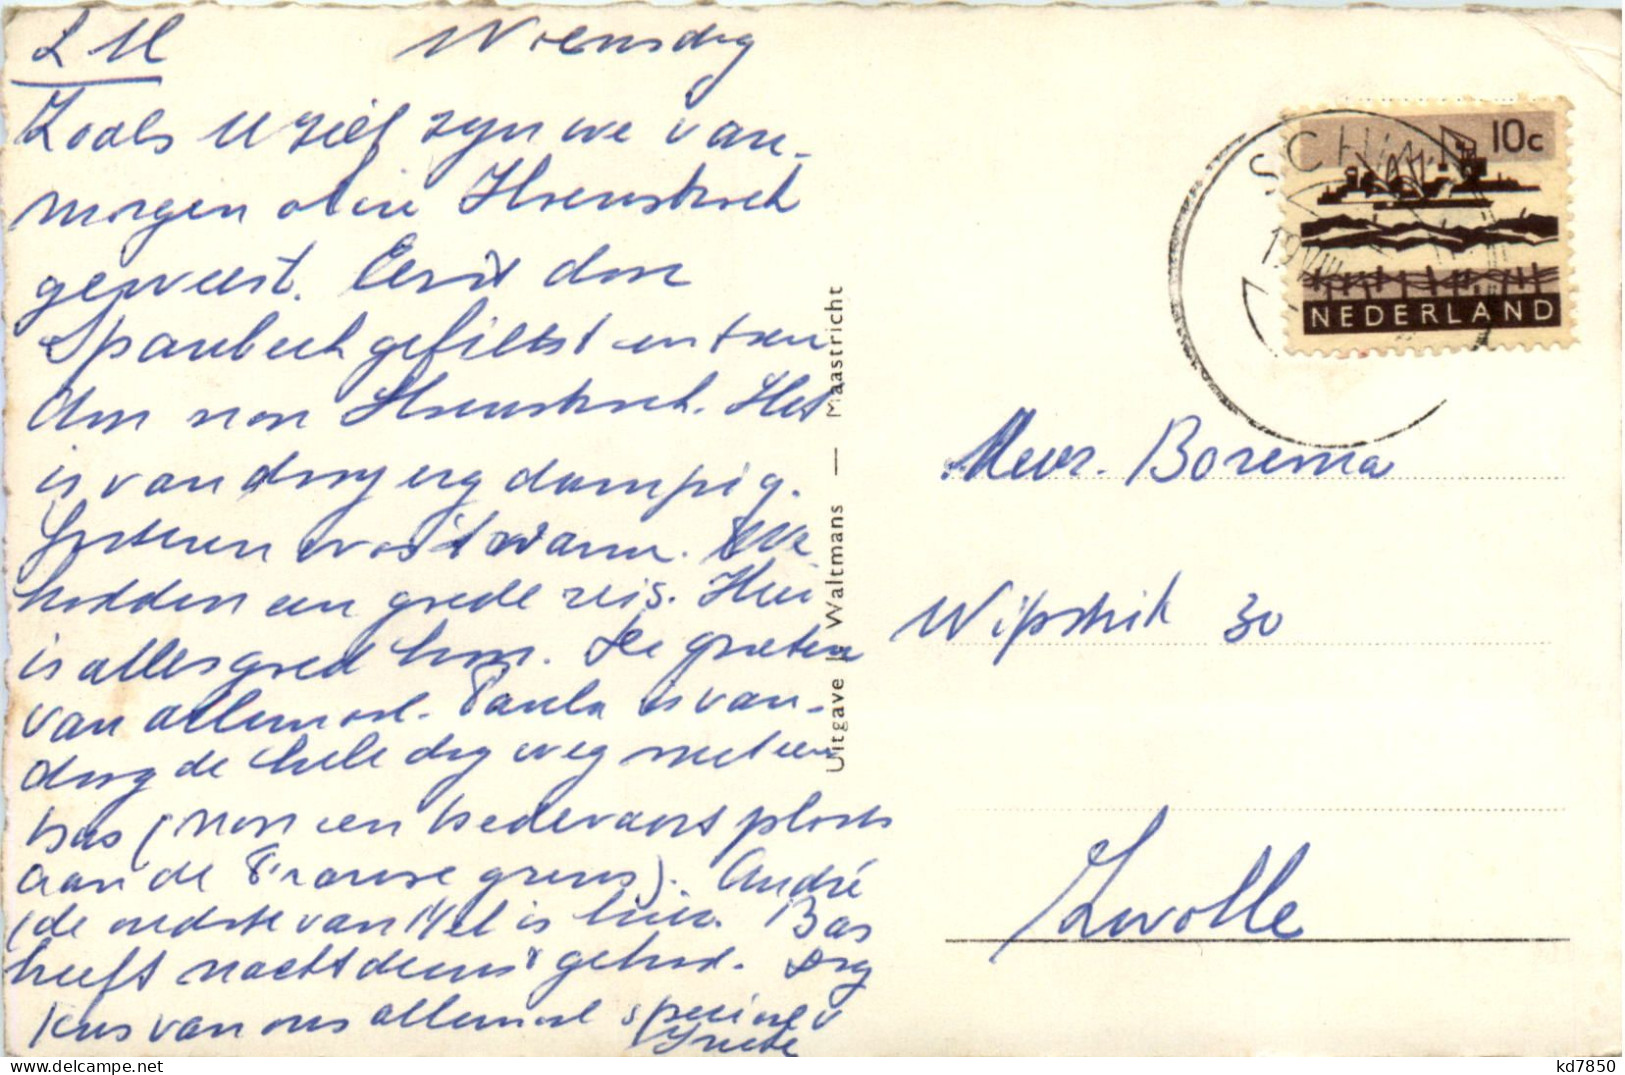 L M Woensdag
Zoals U ziet zyn we van-
morgen in Hoensbroek
geweest. Eerst door
Spaubeek gefietst en toen
door naar Hoensbroek. Het
is vandaag erg dampig.
Gisteren was 't warm. We
hadden een goede reis. Hier
is alles goed hoor. De groeten
van allemaal. Paula is van-
daag de hele dag weg met een
bas (naar een bedevaart plaats
aan de Franse grens). André
(de oudste van Nel is hier. Bas
heeft nachtdienst gehad. Dag
kus van ons allemaal speciaal v
Greet
Uitgave J. Waltmans — Maastricht
SCHIN
19 VIII
10c
NEDERLAND
Mevr. Borema
Wipstrik 30
Zwolle
kd7850